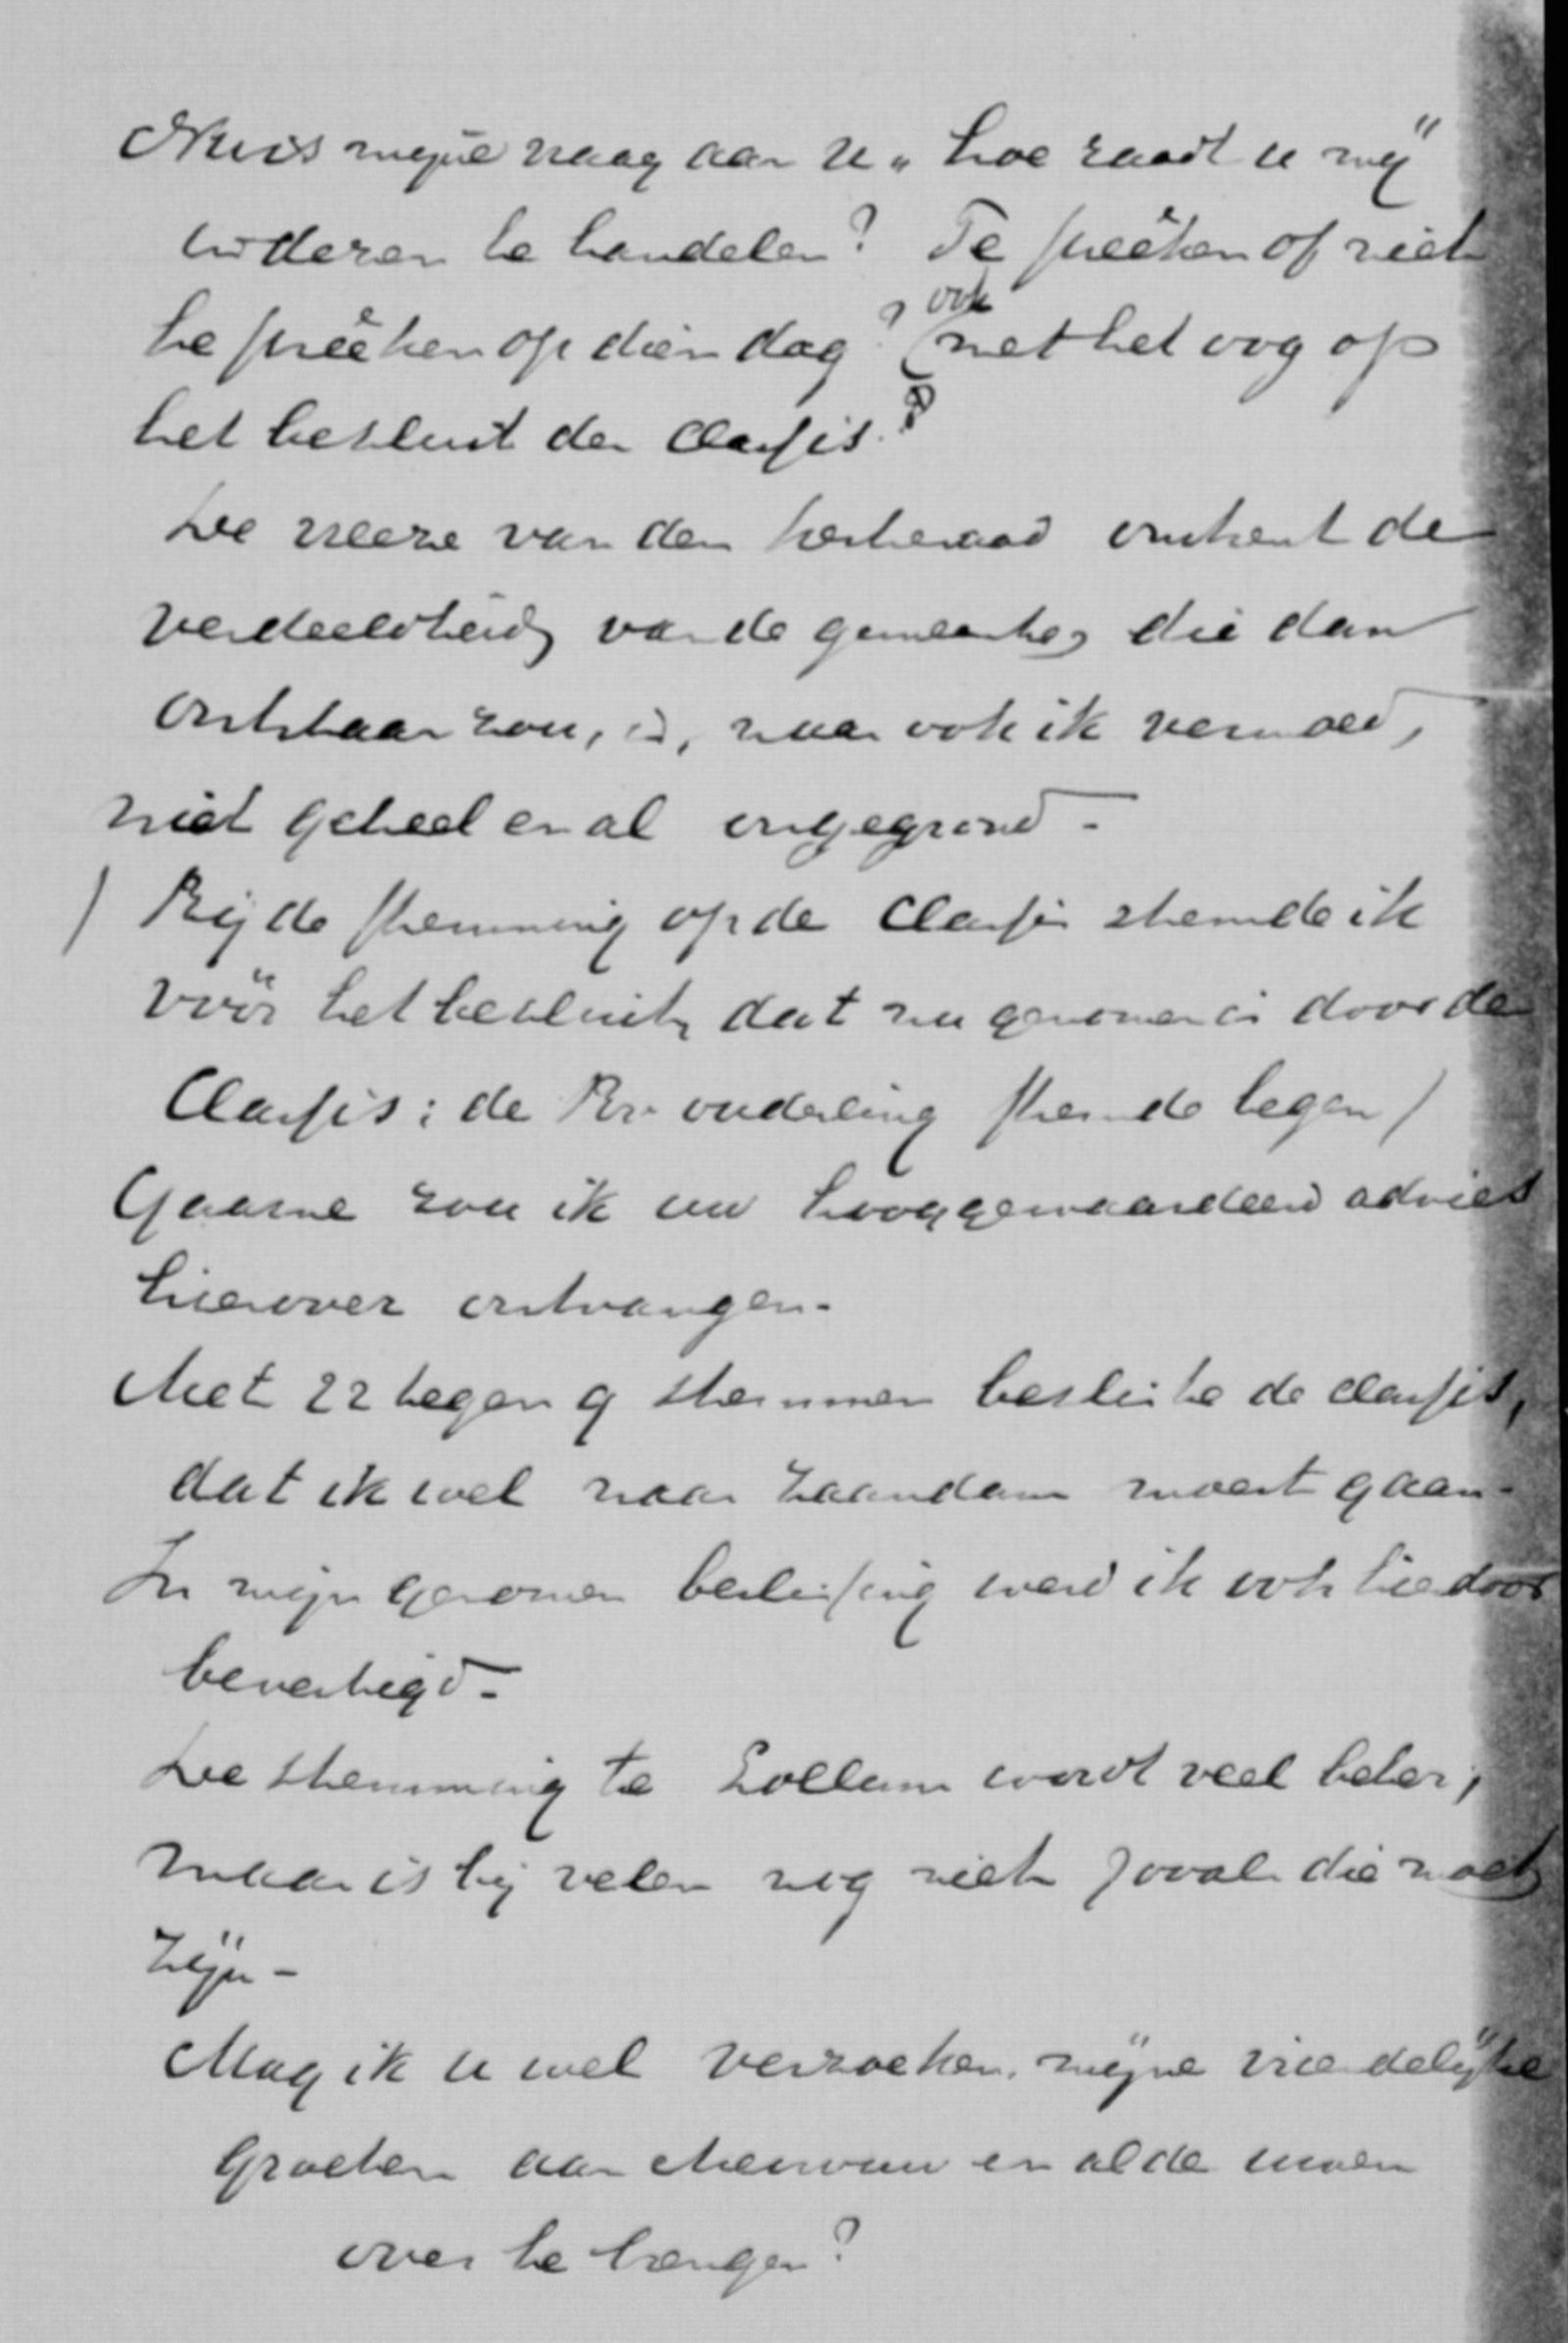 Nu is mijne vraag aan U „hoe raadt u mij"
in deren te handelen? Te preêken of niet
te preêken op dien dag? (ook met het oog op
het besluit der classis?)
De vreeze van den kerkeraad omtrent de
verdeeldheid van de gemeente, die dan
ontstaan zou, is, naar ook ik vermoed,
niet geheel en al ongegrond -
/ Bij de stemming op de classis stemde ik
vóór het besluit, dat nu genomen is door de
Classis; de Br. ouderling stemde tegen /
Gaarne zou ik uw hooggewaardeerd advies
hierover ontvangen.
Met 22 tegen 9 stemmen besliste de classis,
dat ik wel naar Zaandam moest gaan.
In mijn genomen beslissing werd ik ook hierdoor
bevestigd -
De stemming te Lollum wordt veel beter;
maar is bij velen nog niet zooals die moet
zijn -
Mag ik u wel verzoeken, mijne vriendelijke
groeten aan Mevrouw en al de uwen
over te brengen?